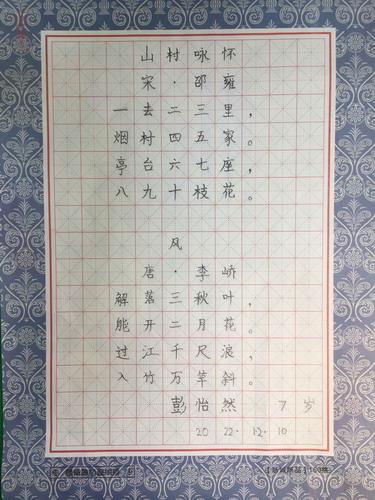 山村咏怀
宋·邵雍
一去二三里，
烟村四五家。
亭台六七座，
八九十枝花。
风
唐·李峤
解落三秋叶，
能开二月花。
过江千尺浪，
入竹万竿斜。
彭怡然 7岁
2022.12.10